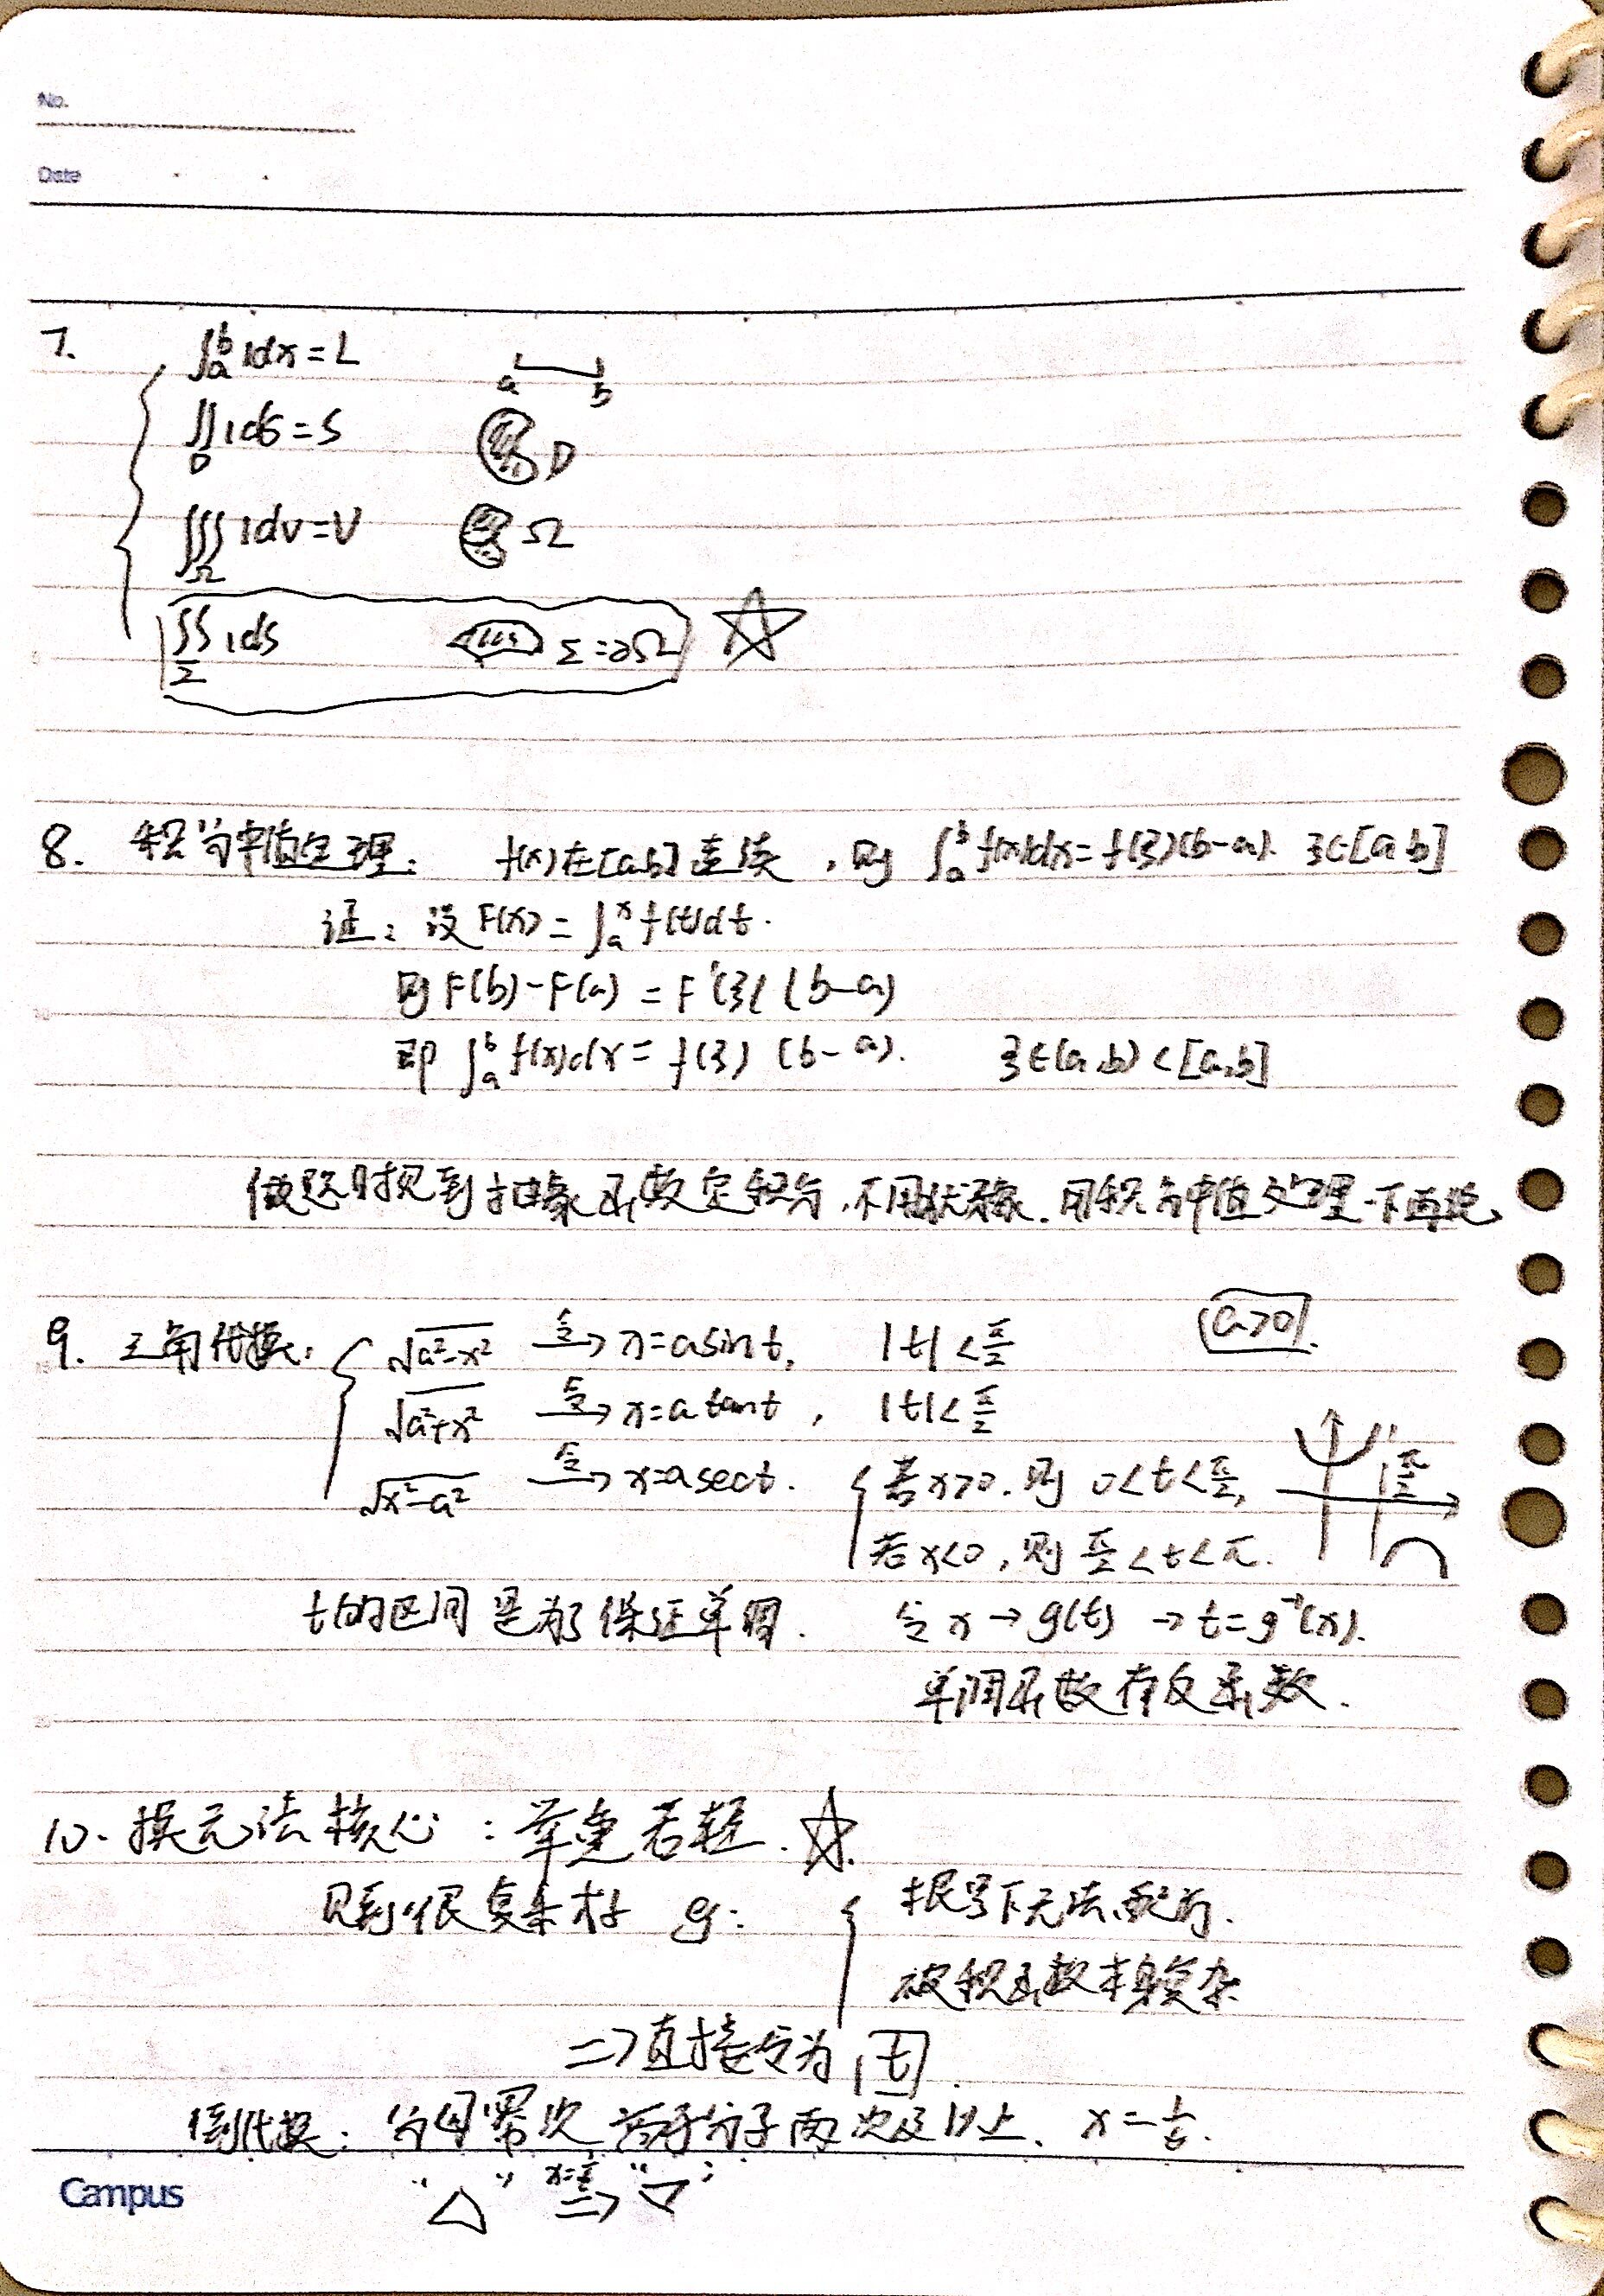 No.
Date
7. ∫_a^b 1dx = L   a b
∬_D 1dσ = S   D
∭_Ω 1dv = V   Ω
∬_Σ 1dS   Σ = ∂Ω ☆
8. 积分中值定理: f(x)在[a,b]连续,则 ∫_a^b f(x)dx = f(ξ)(b-a). ξ∈[a,b]
证: 设 F(x) = ∫_a^x f(t)dt.
则 F(b)-F(a) = F'(ξ)(b-a)
即 ∫_a^b f(x)dx = f(ξ)(b-a). ξ∈(a,b)⊂[a,b]
做题时见到抽象函数定积分,不用犹豫.用积分中值定理一下再说
9. 三角代换: √(a²-x²) 令→ x=asint, |t|<π/2   a>0.
√(a²+x²) 令→ x=atant, |t|<π/2
√(x²-a²) 令→ x=asect. 若x>0.则 0<t<π/2,   π/2
若x<0,则 π/2<t<π.
t的区间是为了保证单调. 令 x→g(t) → t=g⁻¹(x).
单调函数有反函数.
10. 换元法核心: 举重若轻. ☆.
见到"很复杂" eg: 根号下无法配方.
被积函数本身复杂
=> 直接令为 t.
倒代换: 分母幂次高于分子两次及以上. x=1/t.
"△" x=1/t => "▽"
Campus